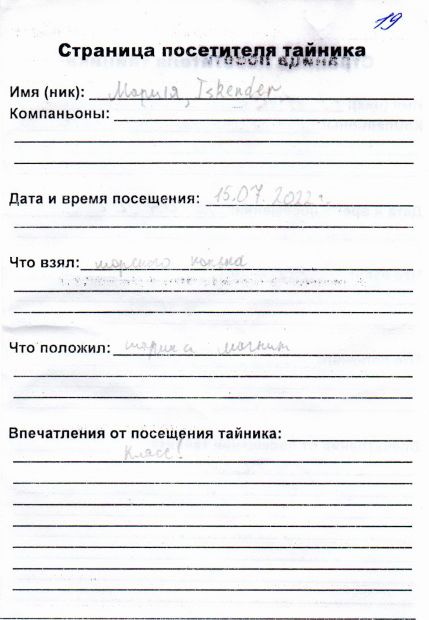 19
Страница посетителя тайника
Имя (ник): Мария, Iskender
Компаньоны:
Дата и время посещения: 15.07.2022г.
Что взял: морского конька
Что положил: магнит
Впечатления от посещения тайника:
Класс!